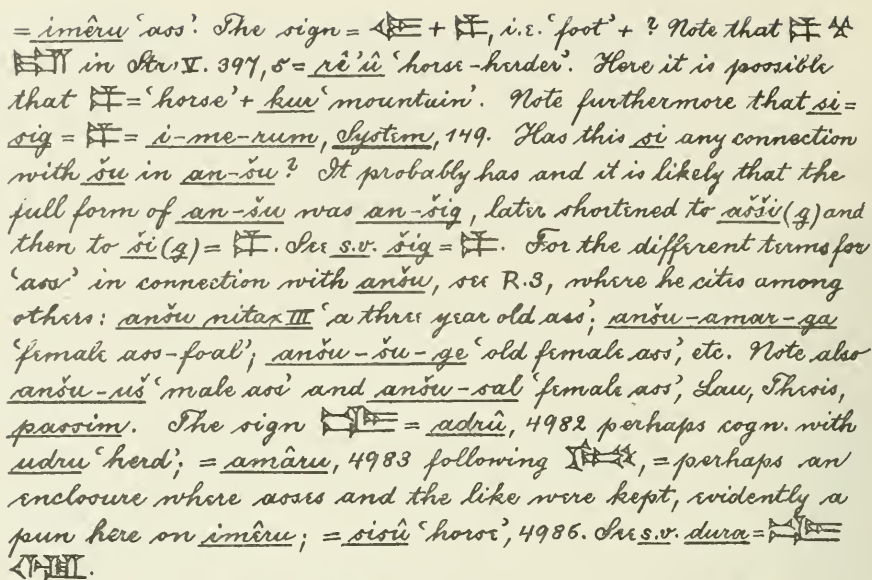 = imêru ‘ass’. The sign = + , i.e. ‘foot’ + ? Note that
in Str. V. 397, 5 = rê’û ‘horse-herder’. Here it is possible
that = ‘horse’ + kur ‘mountain’. Note furthermore that si =
sig = = i-me-rum, System, 149. Has this si any connection
with šu in an-šu? It probably has and it is likely that the
full form of an-šu was an-šig, later shortened to ašši(g) and
then to ši(g) = . See s.v. šig = . For the different terms for
‘ass’ in connection with anšu, see R.3, where he cites among
others: anšu nitax III ‘a three year old ass’; anšu-amar-ga
‘female ass-foal’; anšu-šu-ge ‘old female ass’, etc. Note also
anšu-uš ‘male ass’ and anšu-sal ‘female ass’, Lau, Thesis,
passim. The sign = adrû, 4982 perhaps cogn. with
udru ‘herd’; = amâru, 4983 following , = perhaps an
enclosure where asses and the like were kept, evidently a
pun here on imêru; = sisû ‘horse’, 4986. See s.v. dura =
.